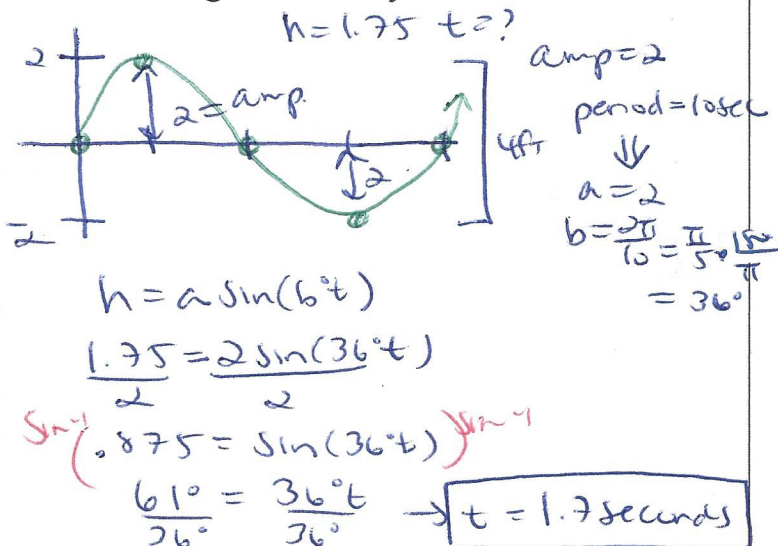 h=1.75 t=?
2
2=amp.
2
-2
4ft
amp=2
period=10sec
⇓
a=2
b=2π/10=π/5·180/π
=36°
h=a sin(b·t)
1.75/2=2sin(36°t)/2
sin-1(.875=sin(36°t))sin-1
61°/36°=36°t/36° → t=1.7seconds